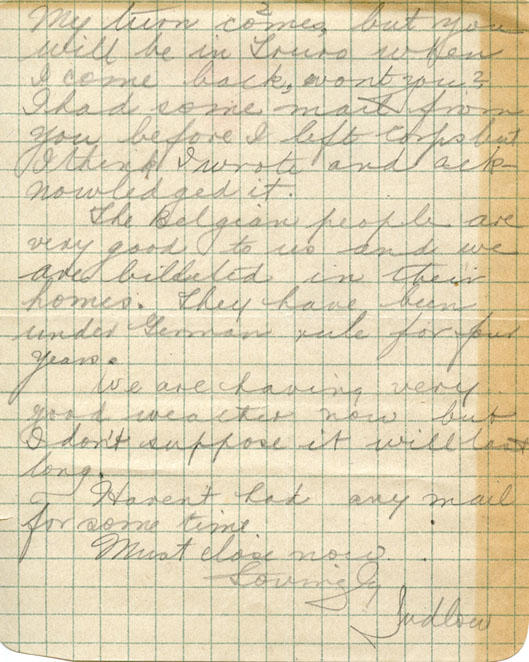 2
My turn comes, but you
will be in Truro when
I come back, wont you?
I had some mail from
you before I left Corps but
I think I wrote and ack-
nowledged it.
The Belgian people are
very good to us and we
are billeted in their
homes. They have been
under German rule for four
years.
We are having very
good weather now but
I don't suppose it will last
long.
Haven't had any mail
for some time
Must close now
Lovingly
Ludlow